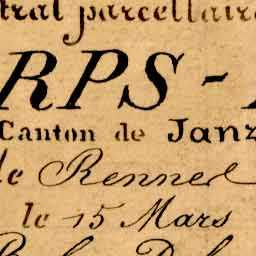 tral parcellaire
RPS -
Canton de Janz
de Rennes
le 15 Mars